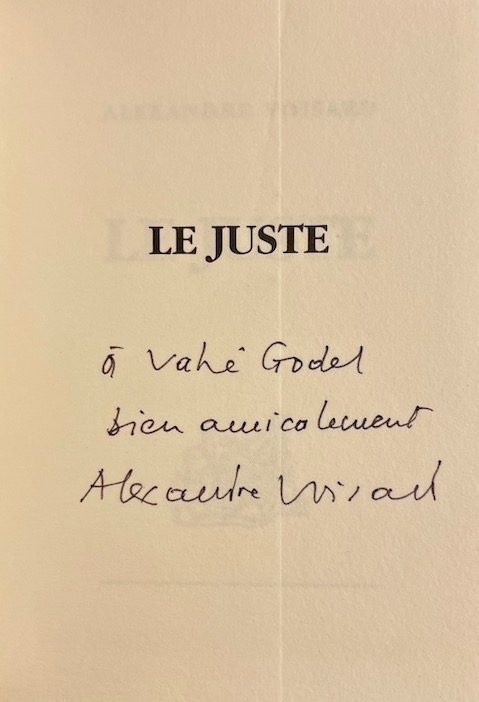 LE JUSTE
à Vahé Godel
bien amicalement
Alexandre Voisard